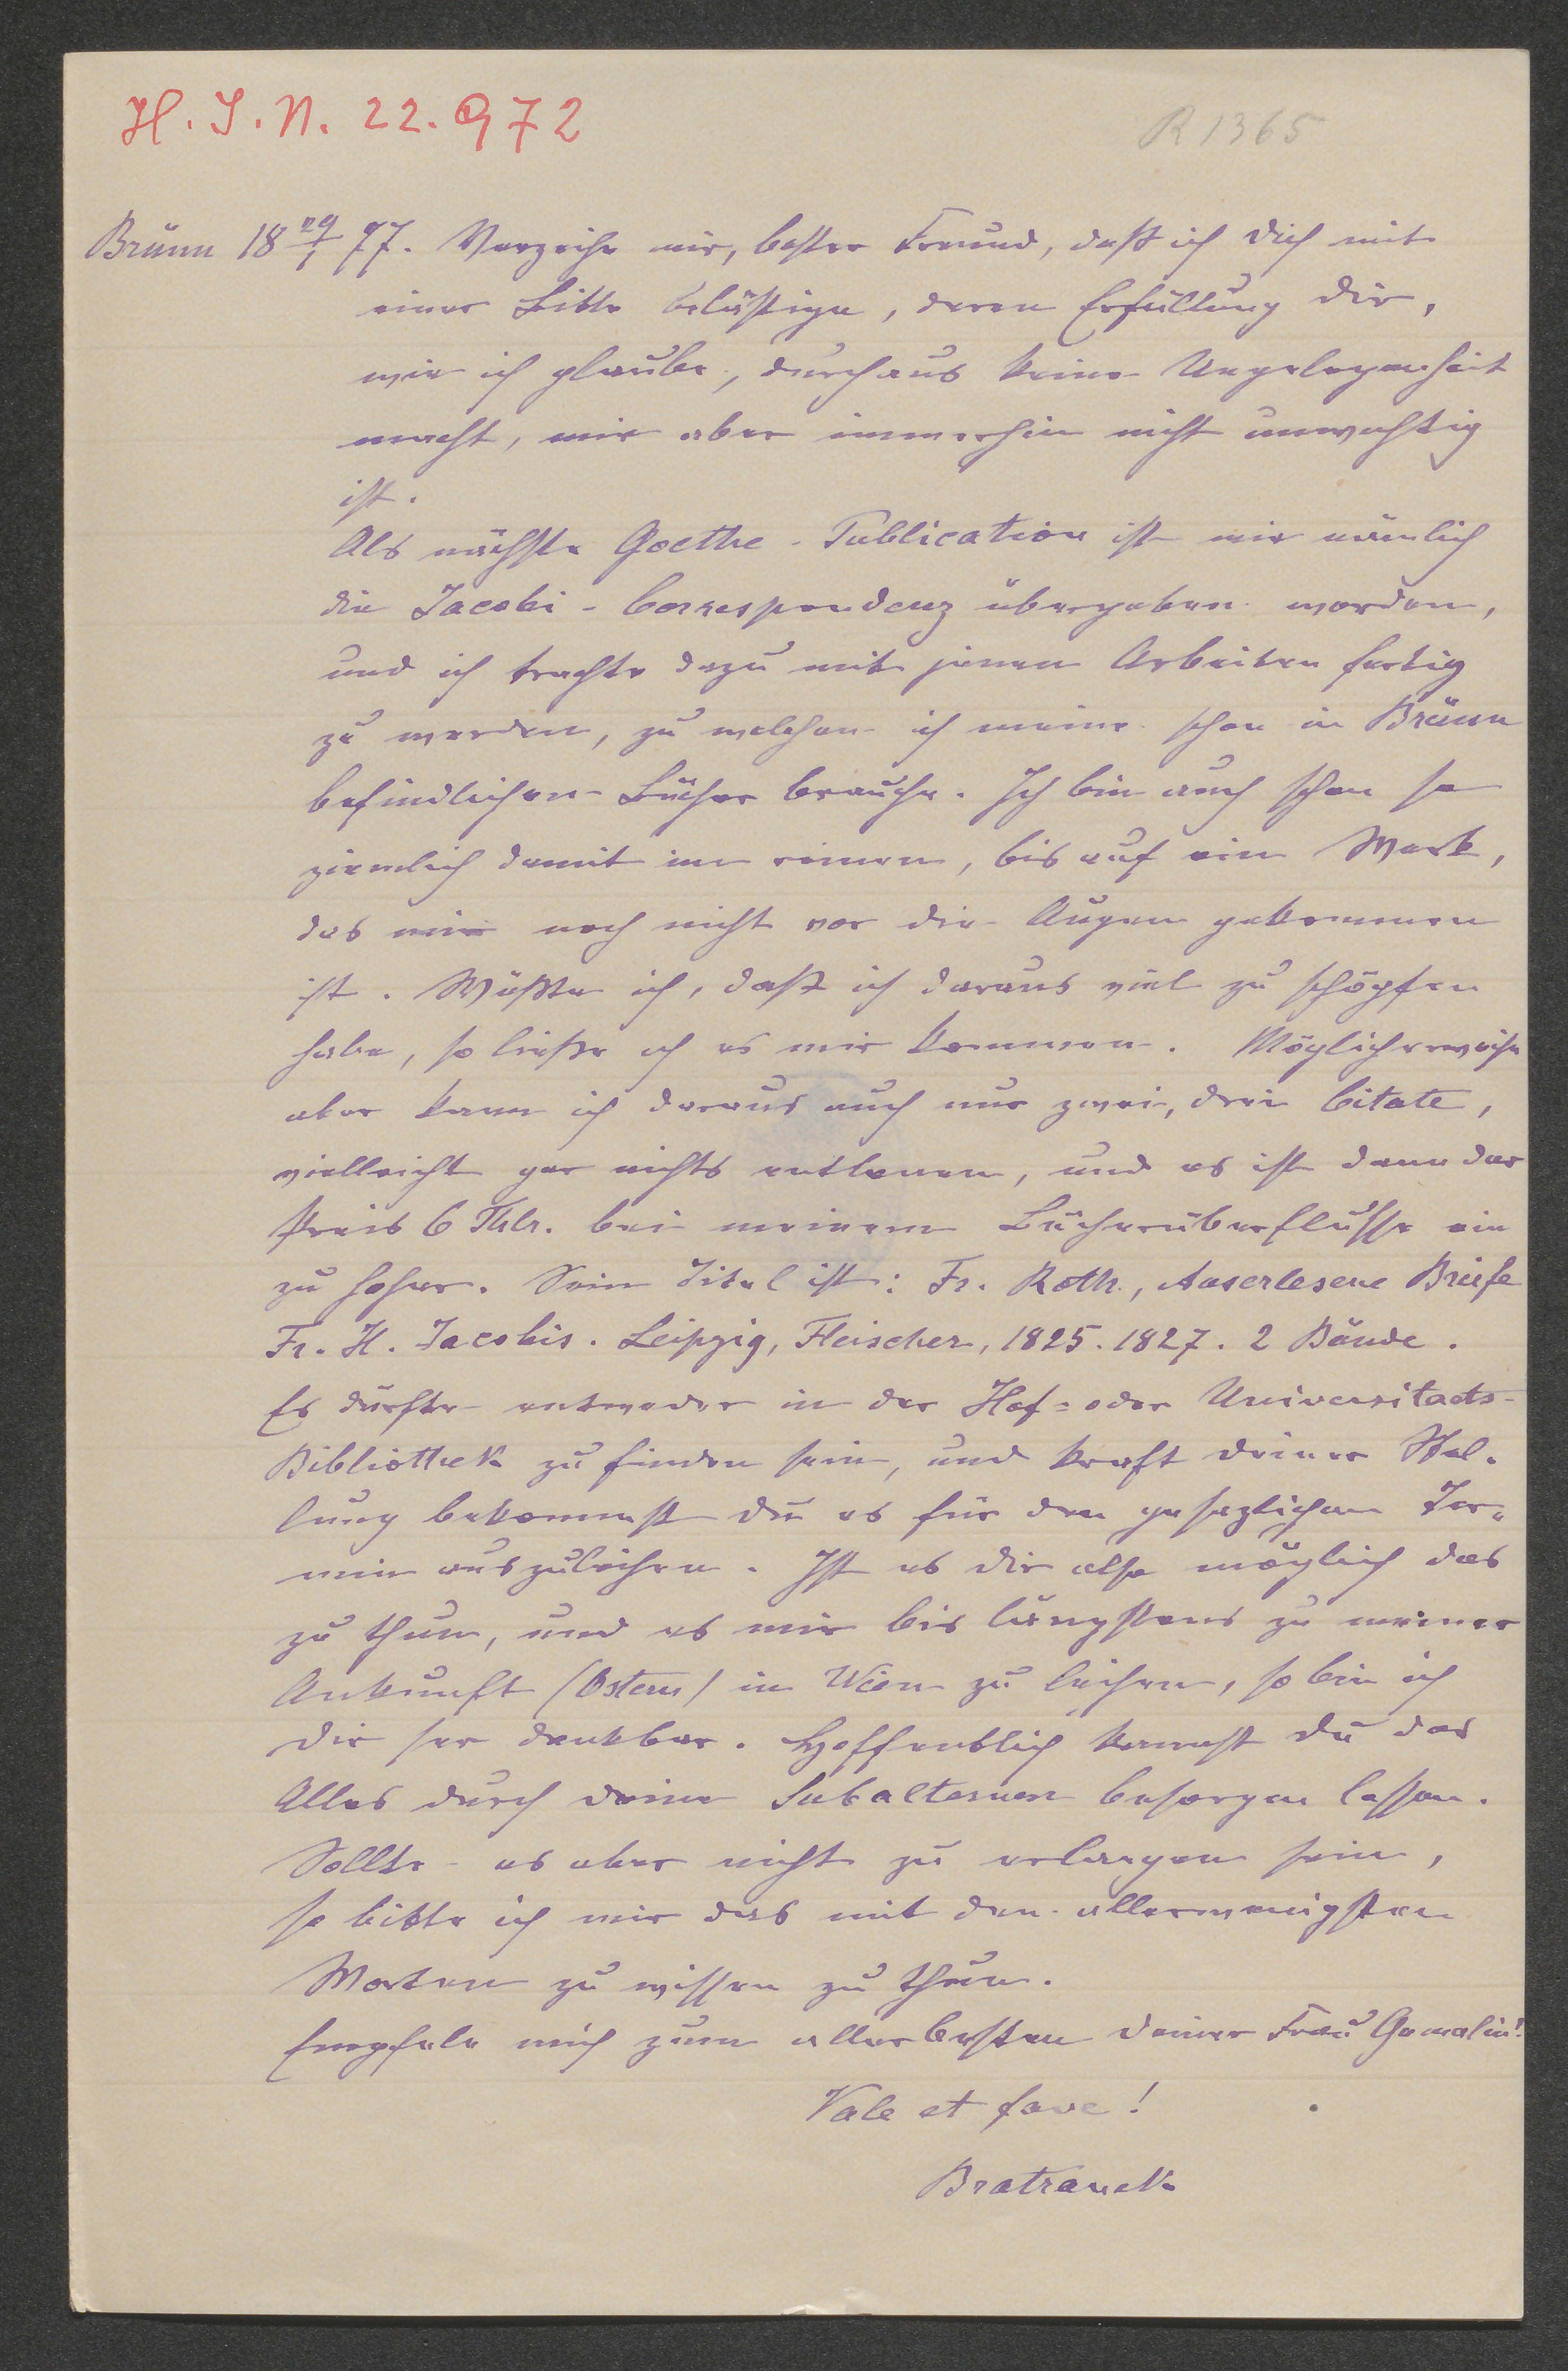 H. I. N. 22.972
R 1365
Brünn 18 29/1 77. Verzeihe mir, bester Freund, daß ich dich mit
einer Bitte belästige, deren Erfüllung dir,
wie ich glaube, durchaus keine Ungelegenheit
macht, mir aber immerhin nicht unwichtig
ist.
Als nächste Goethe-Publication ist mir nämlich
die Jacobi-Correspondenz übergeben worden,
und ich trachte dazu mit jenen Arbeiten fertig
zu werden, zu welchen ich meine schon in Brünn
befindlichen Bücher brauche. Ich bin auch schon so
ziemlich damit im reinen, bis auf ein Werk,
das mir noch nicht vor die Augen gekommen
ist. Wüßte ich, daß ich daraus viel zu schöpfen
habe, so ließe ich es mir kommen. Möglicherweise
aber kann ich daraus auch nur zwei, drei Citate,
vielleicht gar nichts entlenen, und es ist dann der
Preis 6 Thlr. bei meinem Bücherüberflusse ein
zu hoher. Sein Titel ist: Fr. Roth., Auserlesene Briefe
Fr. H. Jacobis. Leipzig, Fleischer, 1825. 1827. 2 Bände.
Es dürfte entweder in der Hof- oder Universitaets-
Bibliothek zu finden sein, und kraft deiner Stel-
lung bekommst du es für den gesezlichen Ter-
min auszuleihen. Ist es dir also möglich das
zu thun, und es mir bis längstens zu meiner
Ankunft (Ostern) in Wien zu leihen, so bin ich
dir ser dankbar. Hoffentlich kannst du das
Alles durch deine Subalternen besorgen lassen.
Sollte es aber nicht zu erlangen sein,
so bitte ich mir das mit den allerwenigsten
Worten zu wissen zu thun.
Empfele mich zum allerbesten deiner Frau Gemalin!
Vale et fave!
Bratranek